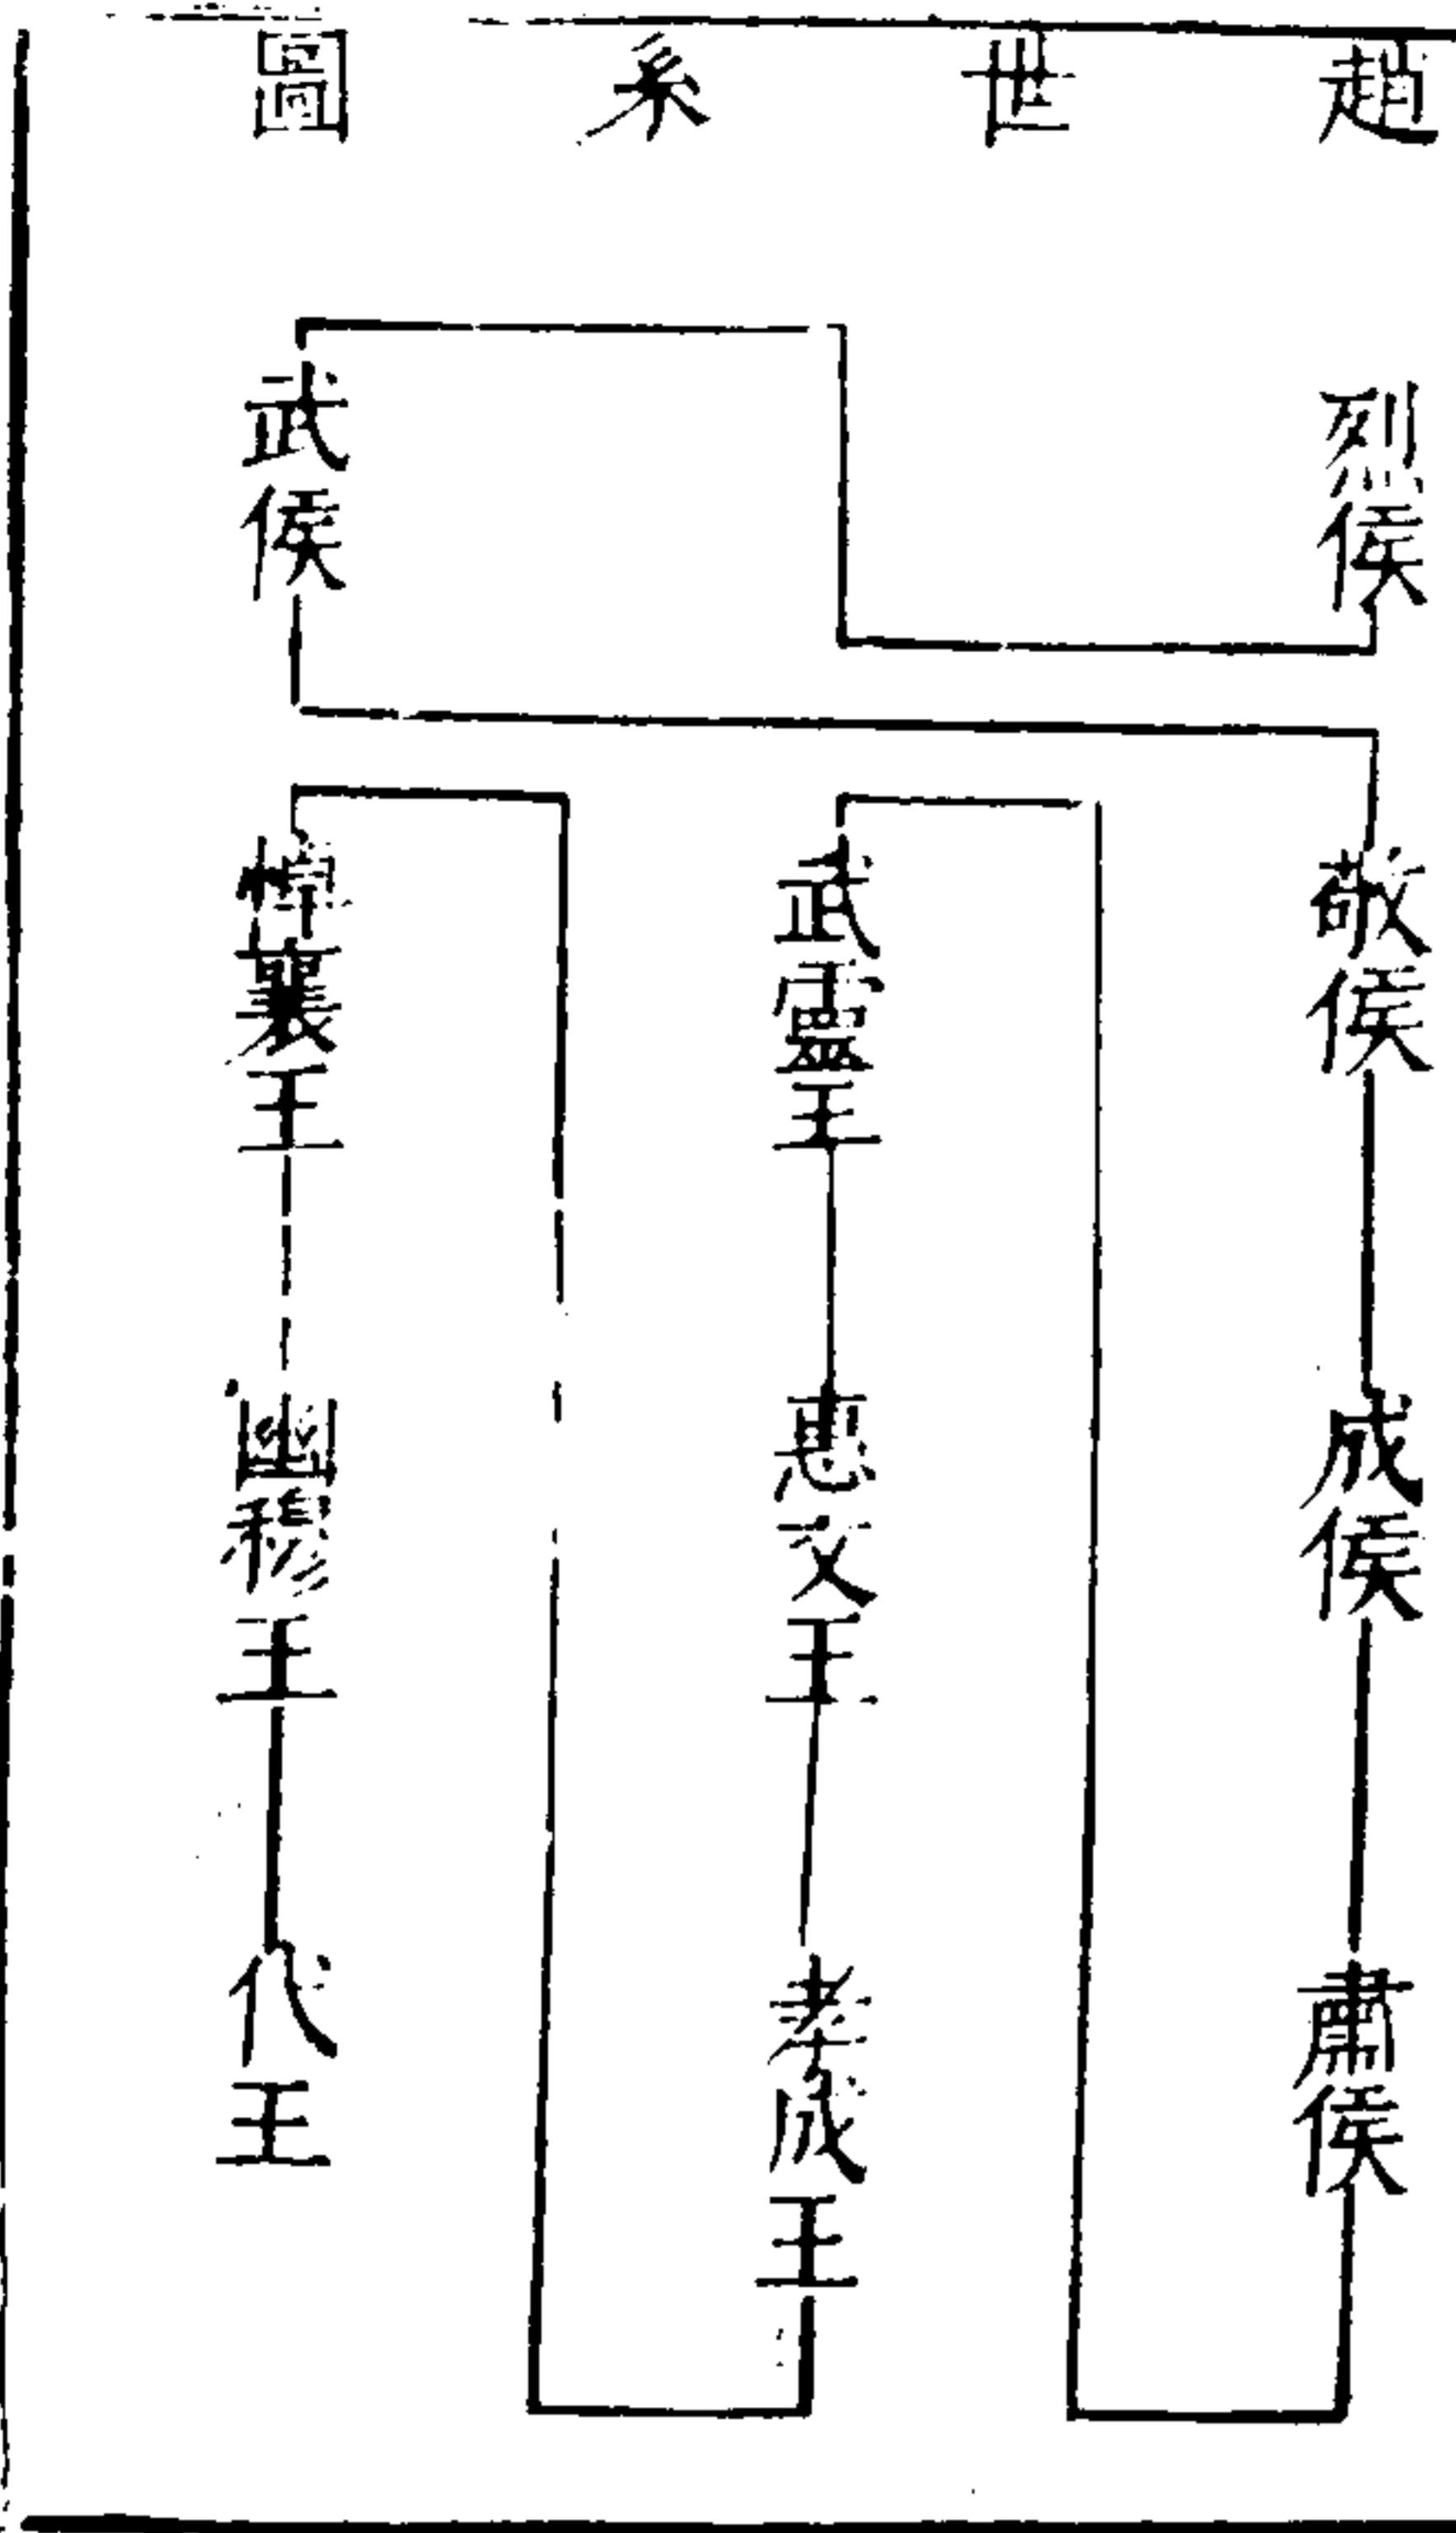 趙世系圖
烈侯
武侯
敬侯
成侯
肅侯
武靈王
惠文王
孝成王
悼襄王
幽穆王
代王